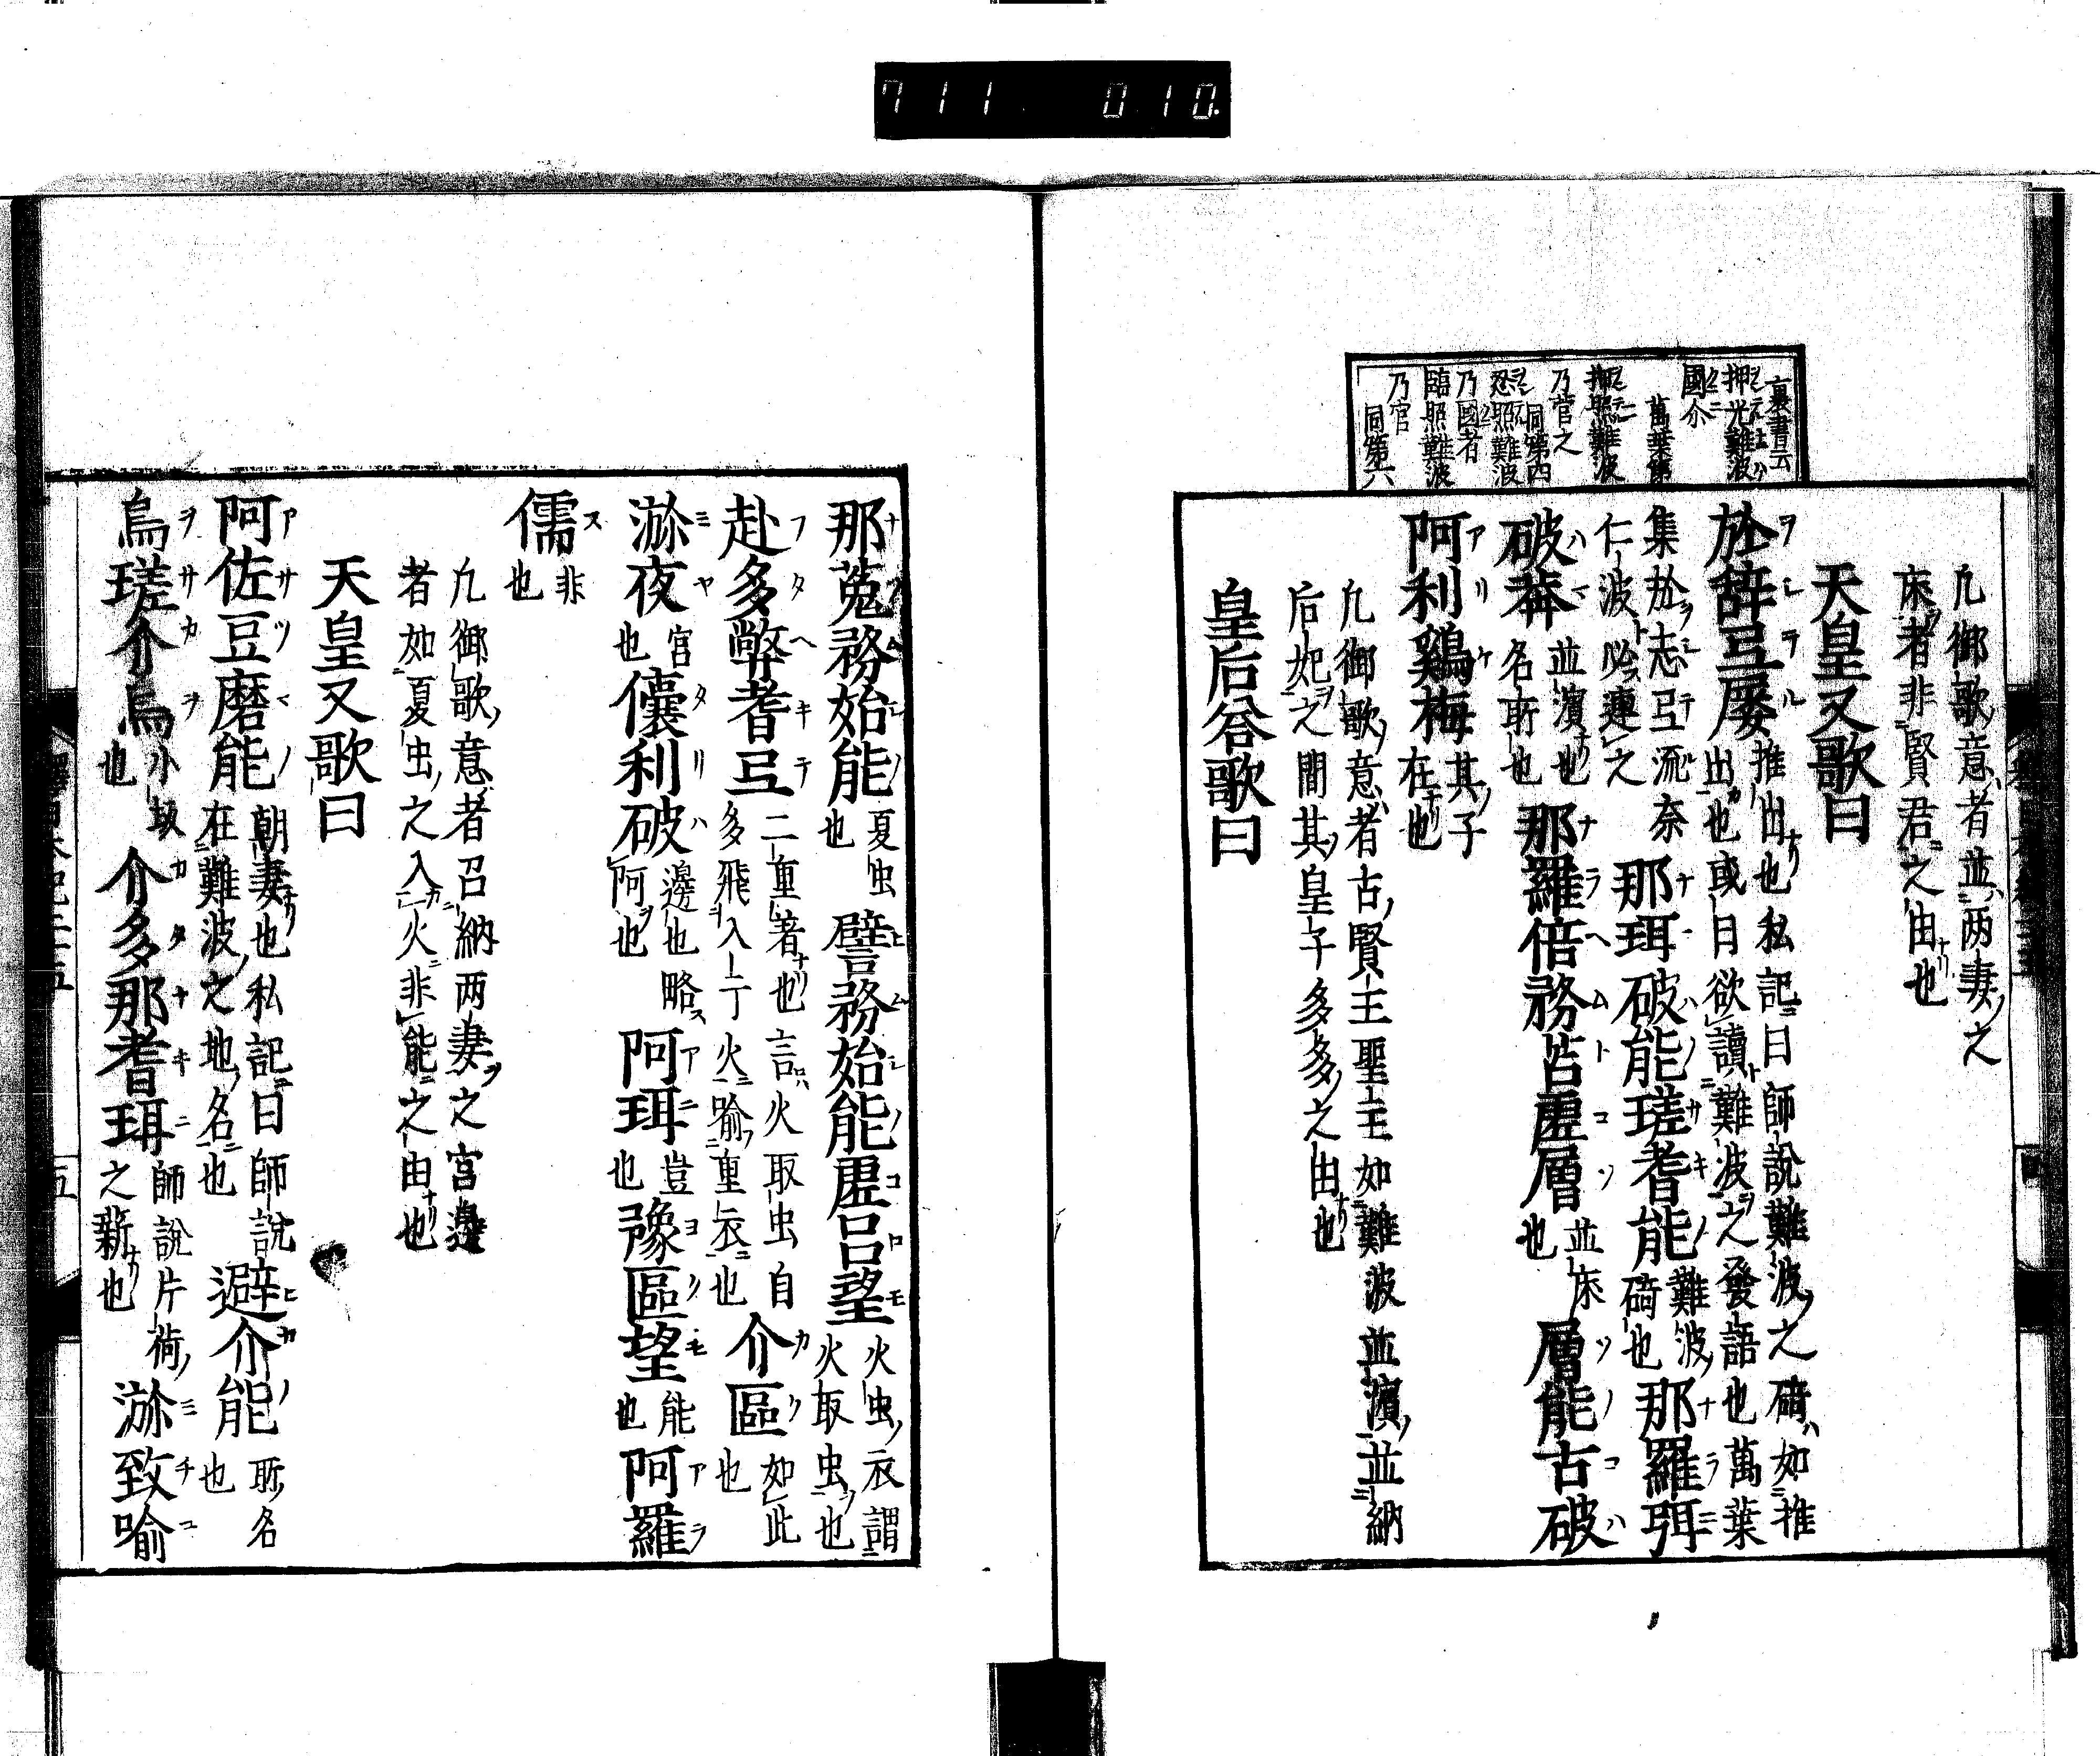 711 010.
裏書云
押光難波
國尒
萬葉第
押照難波
乃菅之
同第四
忍照難波
乃國者
臨照難波
乃官
同第六
凢御歌意者並两妻之
床者非賢君之由也
天皇又歌曰
於辞弖屢推出也私記曰師說難波之碕如推
出也或曰欲讀難波之發語也萬葉
集於志弖流奈
仁波必連之
那珥破能瑳耆能難波
碕也那羅弭
破莾並濱也
名所也那羅倍務苫虛層並床
也層能古破
阿利鷄梅其子
在也
凢御歌意者古賢王聖王如難波並濱並納
后妃之間其皇子多多之由也
皇后答歌曰
那菟務始能夏虫
也譬務始能虛呂望火虫衣謂
火取虫也
赴多弊耆弖二重著也言火取虫自
多飛入于火喻重衣也介區如此
也
瀰夜宮
也儾利破邊也略
阿也阿珥豈
也豫區望能
也阿羅
儒非
也
凢御歌意者召納两妻之宮邊
者如夏虫之入火非能之由也
天皇又歌曰
阿佐豆磨能朝妻也私記曰師說
在難波之地名也避介能所名
也
烏瑳介烏小坂
也介多那耆珥師說片荷
之薪也瀰致喻